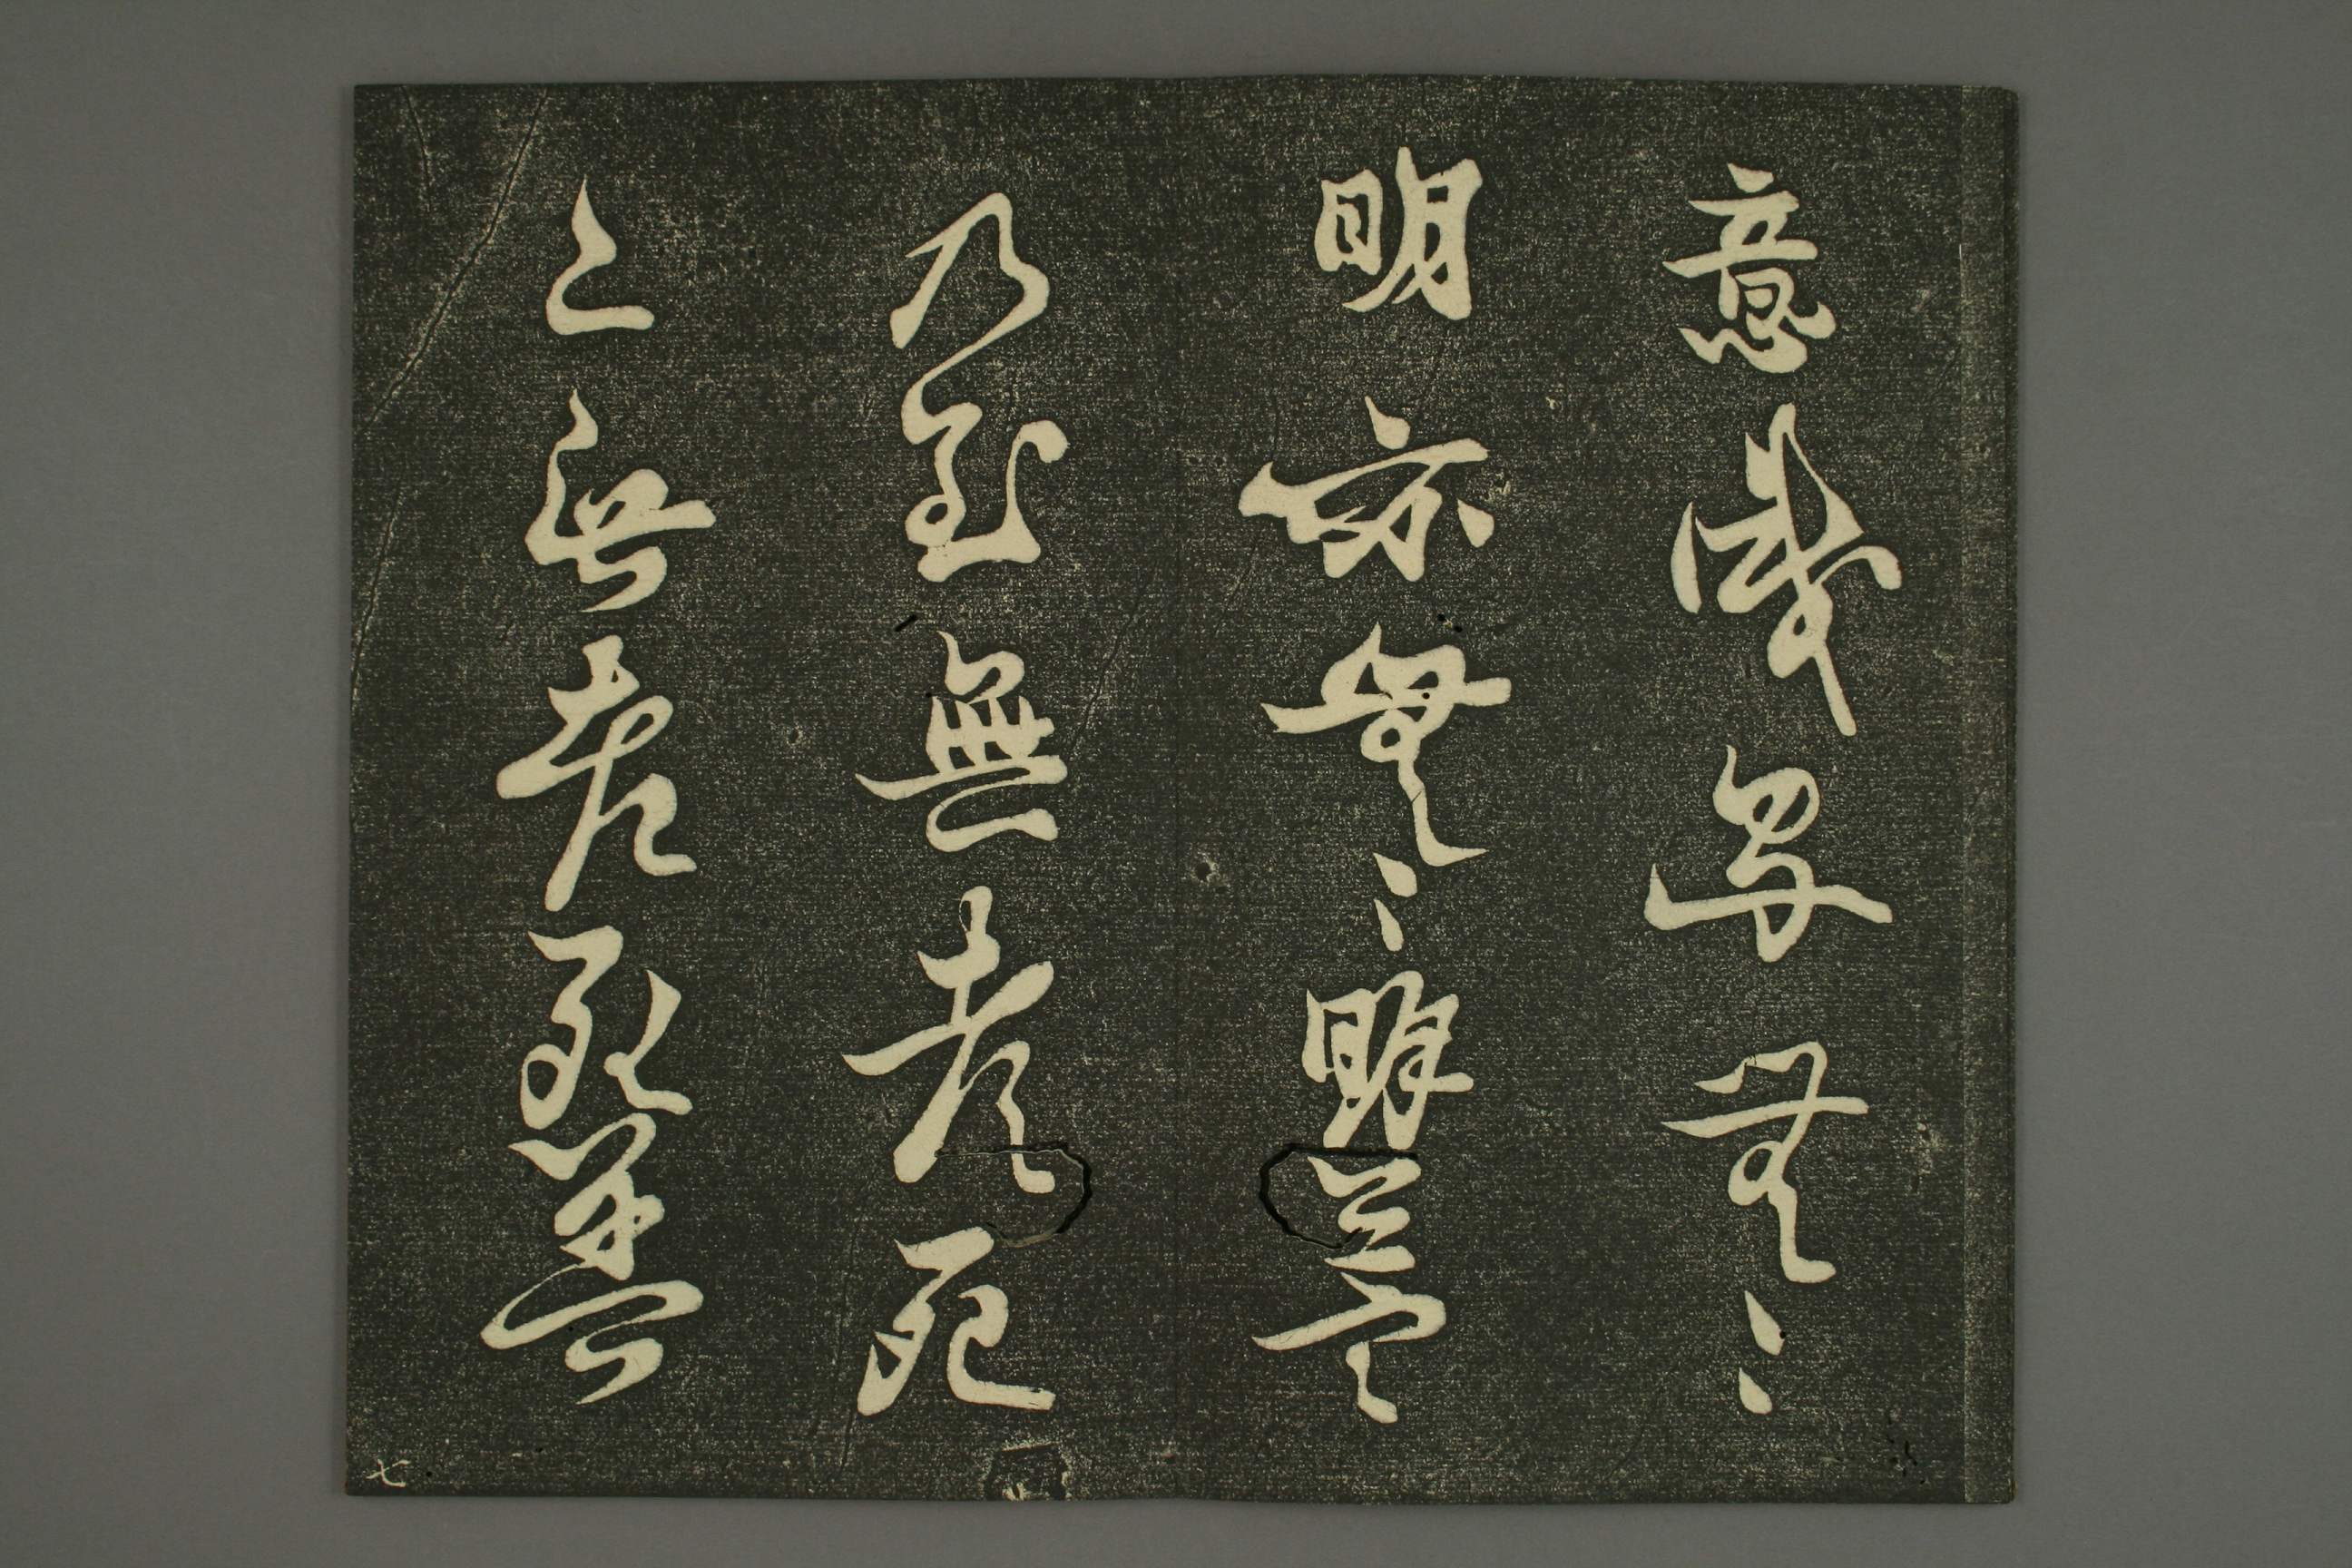 意識界無〻
明亦無〻明盡
乃至無老死
亦無老死盡
七